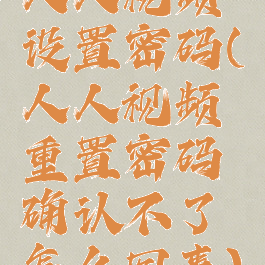 人人视频
设置密码(
人人视频
重置密码
确认不了
怎么回事)